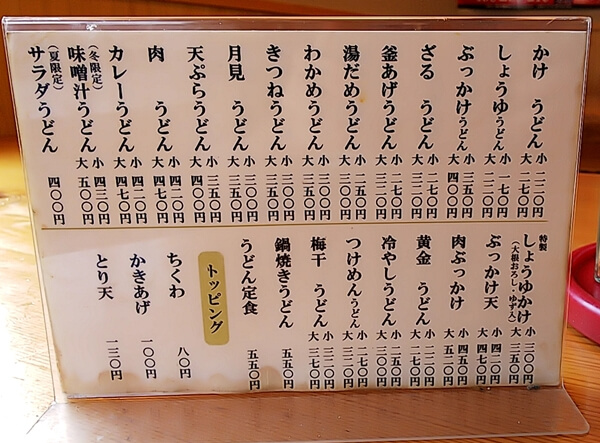 かけ うどん 小 大
しょうゆうどん 小 一七〇円 大 二二〇円
ぶっかけうどん 小 三五〇円 大 四〇〇円
ざる うどん 小 二七〇円 大 三二〇円
釜あげうどん 小 二七〇円 大 三二〇円
湯だめうどん 小 二七〇円 大 三二〇円
わかめうどん 小 三〇〇円 大 三五〇円
きつねうどん 小 三〇〇円 大 三五〇円
月見 うどん 小 三〇〇円 大 三五〇円
天ぷらうどん 小 三五〇円 大 四〇〇円
肉 うどん 小 四二〇円 大 四七〇円
カレーうどん 小 四二〇円 大 四七〇円
(冬限定)
味噌汁うどん 小 大 五〇〇円
(夏限定)
サラダうどん 四〇〇円
特製
しょうゆかけ 小 三〇〇円 大 三五〇円
(大根おろし・ゆず入)
ぶっかけ天 小 四二〇円 大 四七〇円
肉ぶっかけ 小 四五〇円 大
黄金 うどん 小 二二〇円 大 二七〇円
冷やしうどん 小 二五〇円 大 三〇〇円
つけめんうどん 小 二七〇円 大 三二〇円
梅干 うどん 小 三二〇円 大 三七〇円
鍋焼きうどん 五五〇円
うどん定食 五五〇円
トッピング
ちくわ 八〇円
かきあげ 一〇〇円
とり天 一三〇円